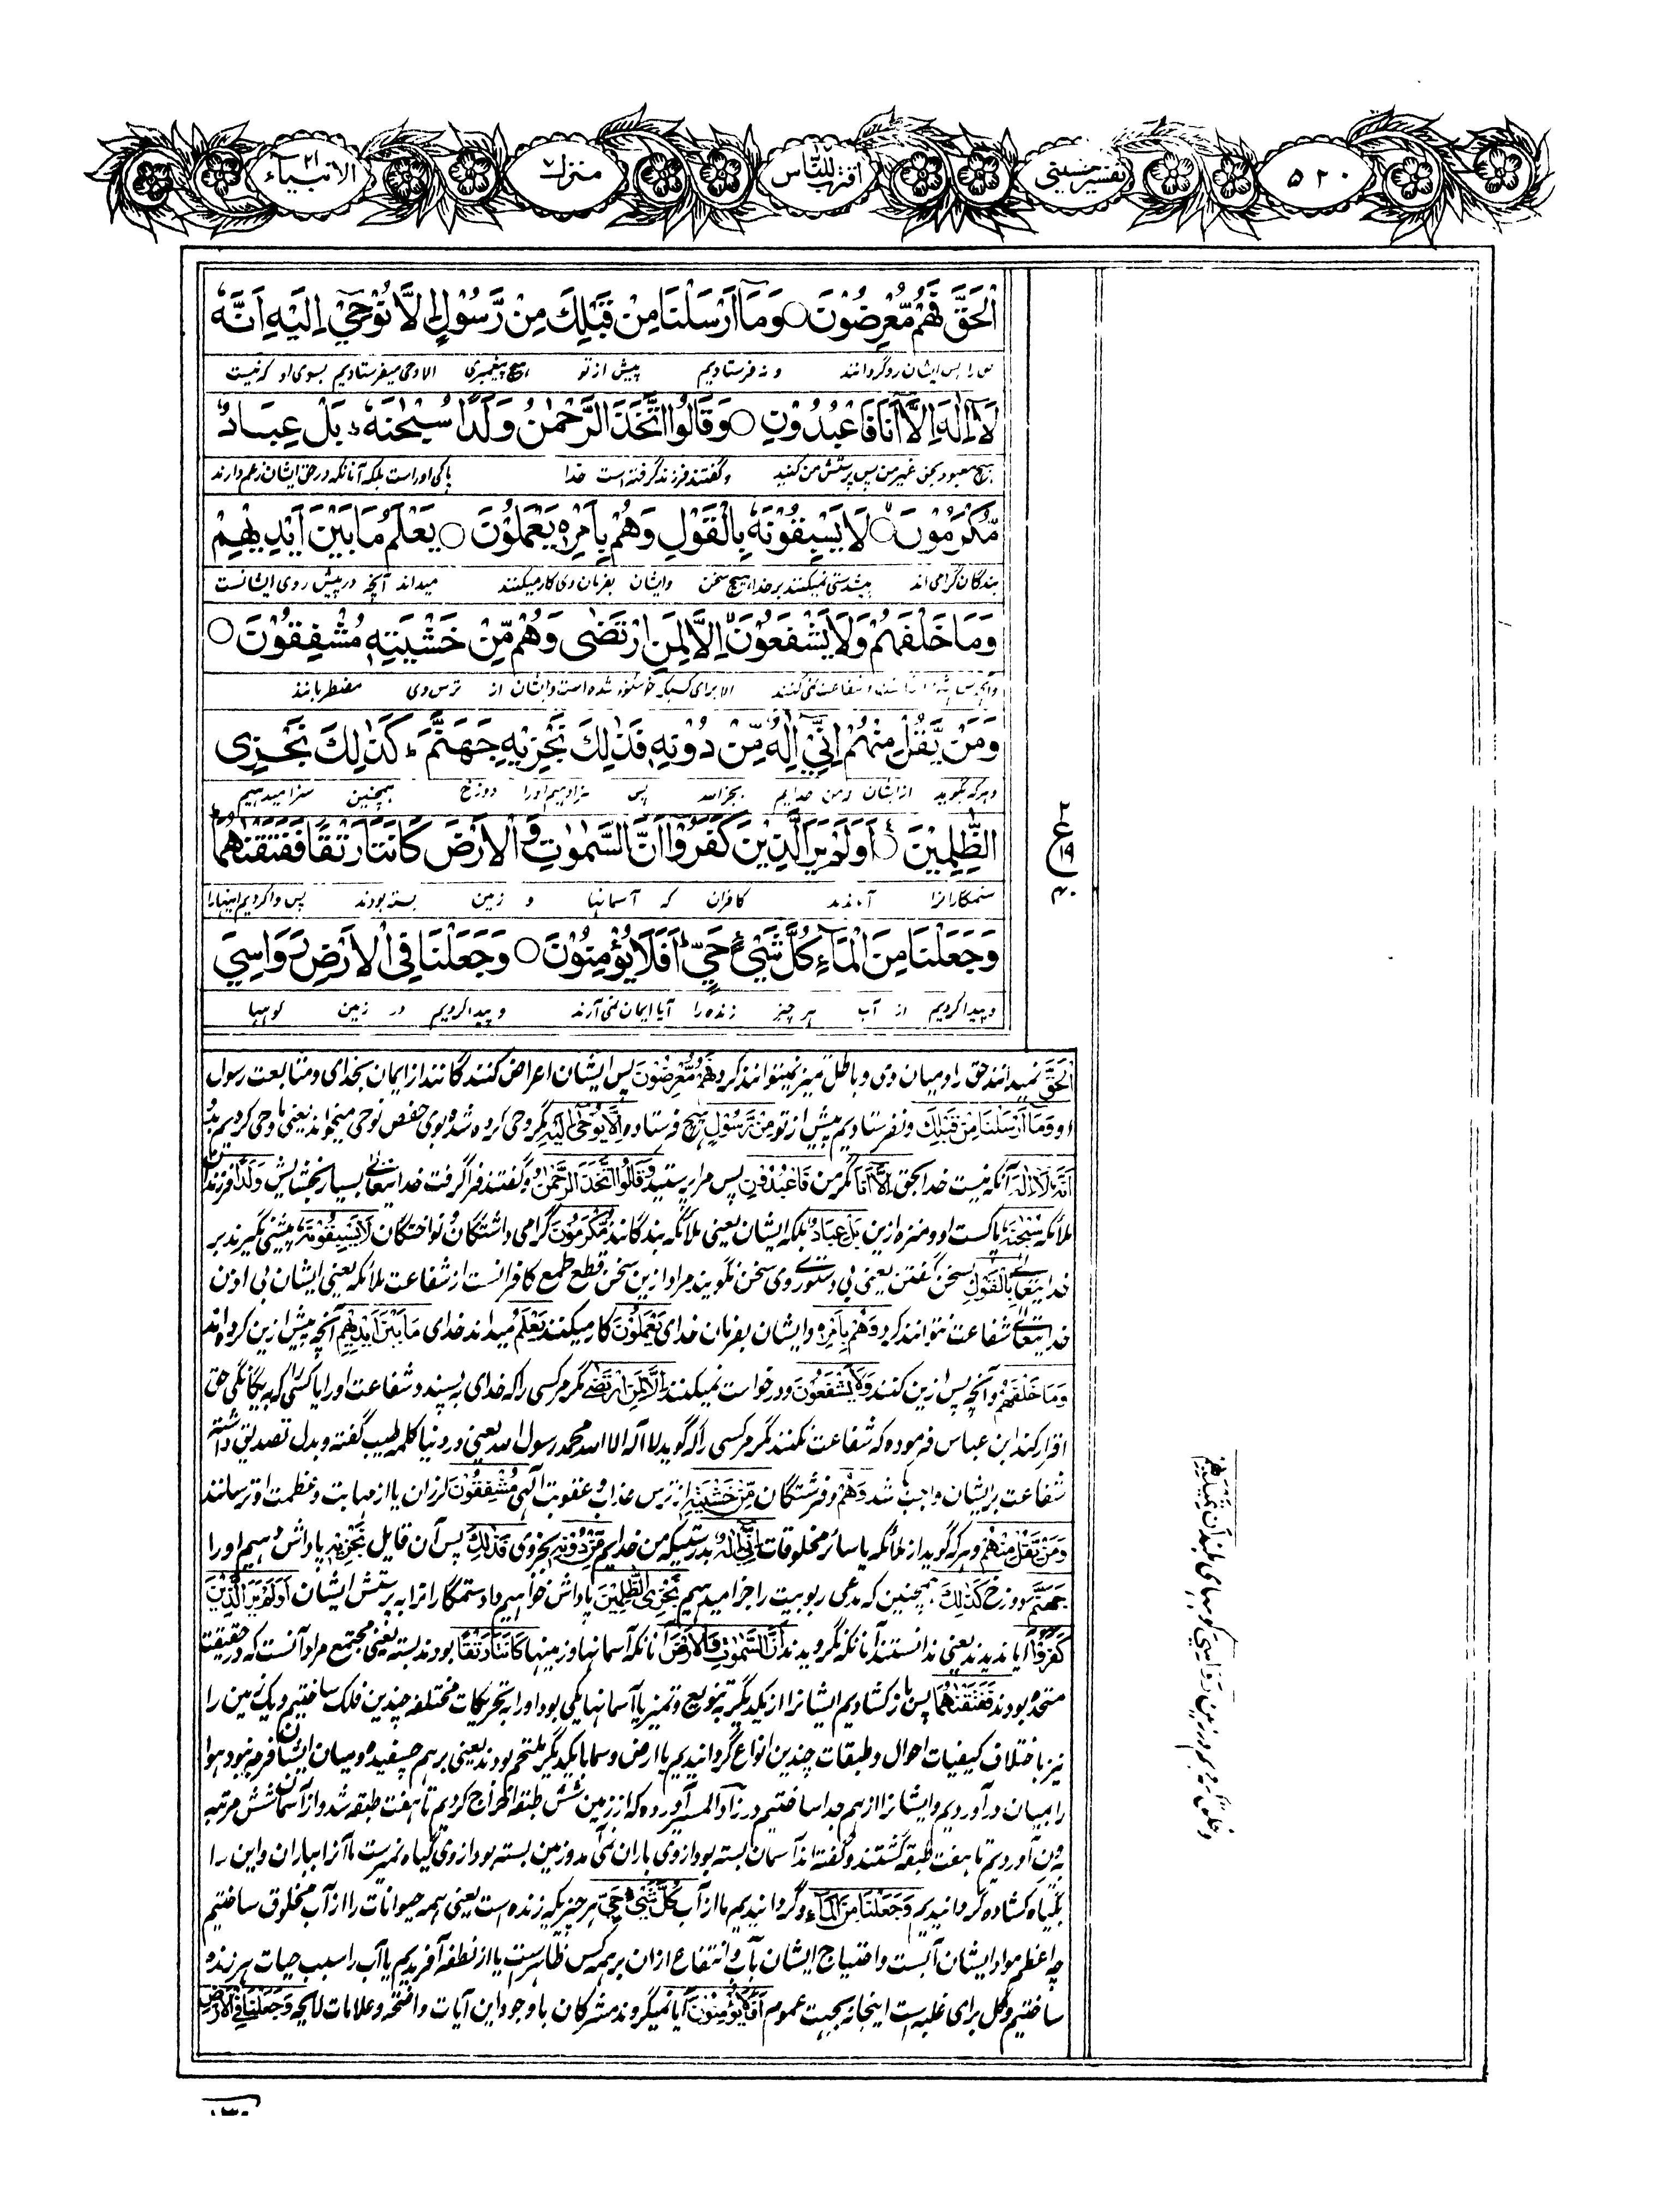 ۵۲۰
تفسیر حسینی
اقترب للنّاس ۱۷
منزل ۴
الانبیاء ۲۱
الْحَقَّ فَهُمْ مُّعْرِضُوْنَ ○ وَمَآ اَرْسَلْنَا مِنْ قَبْلِكَ مِنْ رَّسُوْلٍ اِلَّا نُوْحِيْٓ اِلَيْهِ اَنَّهٗ
حق را پس ایشان روگردانند و نه فرستادیم پیش از تو هیچ پیغمبری الا وحی میفرستادیم بسوی او که نیست
لَآ اِلٰهَ اِلَّآ اَنَا فَاعْبُدُوْنِ ○ وَقَالُوا اتَّخَذَ الرَّحْمٰنُ وَلَدًا سُبْحٰنَهٗ ؕ بَلْ عِبَادٌ
هیچ معبود بحق غیر من پس پرستش من کنید وگفتند فرزند گرفته است خدا پاکی او راست بلکه آنانکه در حق ایشان زعم دارند
مُّكْرَمُوْنَ ○ لَا يَسْبِقُوْنَهٗ بِالْقَوْلِ وَهُمْ بِاَمْرِهٖ يَعْمَلُوْنَ ○ يَعْلَمُ مَا بَيْنَ اَيْدِيْهِمْ
بندگان گرامی اند پیشدستی نمیکنند بر خدا هیچ سخن وایشان بفرمان وی کار میکنند میداند آنچه در پیش روی ایشانست
وَمَا خَلْفَهُمْ وَلَا يَشْفَعُوْنَ اِلَّا لِمَنِ ارْتَضٰى وَهُمْ مِّنْ خَشْيَتِهٖ مُشْفِقُوْنَ ○
شفاعت نمی کنند الا برای کسیکه خوشنود شده است وایشان از ترس وی مضطربانند
وَمَنْ يَّقُلْ مِنْهُمْ اِنِّيْٓ اِلٰهٌ مِّنْ دُوْنِهٖ فَذٰلِكَ نَجْزِيْهِ جَهَنَّمَ ؕ كَذٰلِكَ نَجْزِى
وهر که بگوید از ایشان که من خدایم بجز الله پس سزا دهیم اورا دوزخ همچنین سزا میدهیم
الظّٰلِمِيْنَ ○ اَوَلَمْ يَرَ الَّذِيْنَ كَفَرُوْٓا اَنَّ السَّمٰوٰتِ وَ الْاَرْضَ كَانَتَا رَتْقًا فَفَتَقْنٰهُمَا
ستمگارانرا آیا ندیدند کافران که آسمانها و زمین بسته بودند پس وا کردیم اینها را
وَجَعَلْنَا مِنَ الْمَآءِ كُلَّ شَيْءٍ حَيٍّ ؕ اَفَلَا يُؤْمِنُوْنَ ○ وَجَعَلْنَا فِى الْاَرْضِ رَوَاسِيَ
و پیدا کردیم از آب هر چیز زنده را آیا ایمان نمی آرند و پیدا کردیم در زمین کوهها
۲
ع
۱۹
الْحَقَّ نمیدانند حق را ومیان وی و باطل تمییز نمیتوانند کرد فَهُمْ مُّعْرِضُوْنَ پس ایشان اعراض کنندگانند از ایمان بخدای ومتابعت رسول
او وَمَا اَرْسَلْنَا مِنْ قَبْلِكَ ونفرستادیم پیش از تو مِنْ رَّسُوْلٍ هیچ فرستاده اِلَّا يُوْحٰى اِلَيْهِ مگر وحی کرده شده بوی حفص نوحی میخواند یعنی ما وحی کردیم بدو
اَنَّهٗ لَا اِلٰهَ آنکه نیست خدا بحق اِلَّا اَنَا مگر من فَاعْبُدُوْنِ پس مرا پرستید وَقَالُوا اتَّخَذَ الرَّحْمٰنُ وگفتند فرا گرفت خدایتعالی بسیار بخشایش وَلَدًا فرزند
ملائکه سُبْحٰنَهٗ پاکست او ومنزه ازین بَلْ عِبَادٌ بلکه ایشان یعنی ملائکه بندگانند مُّكْرَمُوْنَ گرامی داشتگان ونواختگان لَا يَسْبِقُوْنَهٗ پیشی نگیرند بر
خدایتعالی بِالْقَوْلِ بسخن گفتن یعنی بی دستوری وی سخن نگویند مراد ازین سخن قطع طمع کافرانست از شفاعت ملائکه یعنی ایشان بی اذن
خدایتعالی شفاعت نتوانند کرد وَهُمْ بِاَمْرِهٖ وایشان بفرمان خدای يَعْمَلُوْنَ کار میکنند يَعْلَمُ میداند خدای مَا بَيْنَ اَيْدِيْهِمْ آنچه پیش ازین کرده اند
وَمَا خَلْفَهُمْ وآنچه پس ازین کنند وَلَا يَشْفَعُوْنَ ودرخواست نمیکنند اِلَّا لِمَنِ ارْتَضٰى مگر مر کسی را که خدای به پسندد شفاعت او را یا کسی که به یگانگی حق
اقرار کند ابن عباس فرموده که شفاعت نکنند مگر مر کسی را که گوید لا اله الا الله محمد رسول الله یعنی در دنیا کلمه طیب گفته وبدل تصدیق داشته
شفاعت بر ایشان واجب شد وَهُمْ وفرشتگان مِّنْ خَشْيَتِهٖ از ترس عذاب وعقوبت الهی مُشْفِقُوْنَ لرزان یا از مهابت وعظمت او ترسانند
وَمَنْ يَّقُلْ مِنْهُمْ وهر که گوید از ملائکه یا سائر مخلوقات اِنِّيْ اِلٰهٌ بدرستیکه من خدایم مِّنْ دُوْنِهٖ بجز وی فَذٰلِكَ پس آن قایل نَجْزِيْهِ پاداش دهیم او را
جَهَنَّمَ دوزخ كَذٰلِكَ همچنین که مدعی ربوبیت را جزا میدهیم نَجْزِى الظّٰلِمِيْنَ پاداش خواهیم داد ستمگارانرا به پرستش ایشان اَوَلَمْ يَرَ الَّذِيْنَ
كَفَرُوْٓا آیا ندیدند یعنی ندانستند آنانکه نگرویدند اَنَّ السَّمٰوٰتِ وَالْاَرْضَ آنکه آسمانها وزمینها كَانَتَا رَتْقًا بودند بسته یعنی مجتمع مراد آنست که در حقیقت
متحد بودند فَفَتَقْنٰهُمَا پس باز گشادیم ایشانرا از یکدیگر به تنویع وتمییز یا آسمانها یکی بود او را به تحریکات مختلفه چندین فلک ساختیم ویک زمین را
نیز باختلاف کیفیات احوال وطبقات چندین انواع گردانیدیم یا ارض وسما با یکدیگر ملتحم بودند یعنی بر هم چسفیده ومیان ایشان فرجه نبود هوا
را بمیان در آوردیم وایشانرا از هم جدا ساختیم در زاد المسیر آورده که از زمین شش طبقه اخراج کردیم تا هفت طبقه شد واز آسمان شش مرتبه
بیرون آوردیم تا هفت طبقه گشتند وگفته اند آسمان بسته بود از وی باران نمی آمد وزمین بسته بود از وی گیاه نمیرست ما آنرا بباران واین را
بگیاه کشاده گردانیدیم وَجَعَلْنَا مِنَ الْمَآءِ وگردانیدیم ما از آب كُلَّ شَيْءٍ حَيٍّ هر چیزیکه زنده است یعنی همه حیوانات را از آب مخلوق ساختیم
چه اعظم مواد ایشان آبست واحتیاج ایشان بآب وانتفاع ازان بر همه کس ظاهرست یا از نطفه آفریدیم یا آب را سبب حیات هر زنده
ساختیم وکل برای غلبه است اینجا نه بجهت عموم اَفَلَا يُؤْمِنُوْنَ آیا نمیگروند مشرکان با وجود این آیات واضحه وعلامات لایحه وَجَعَلْنَا فِى الْاَرْضِ